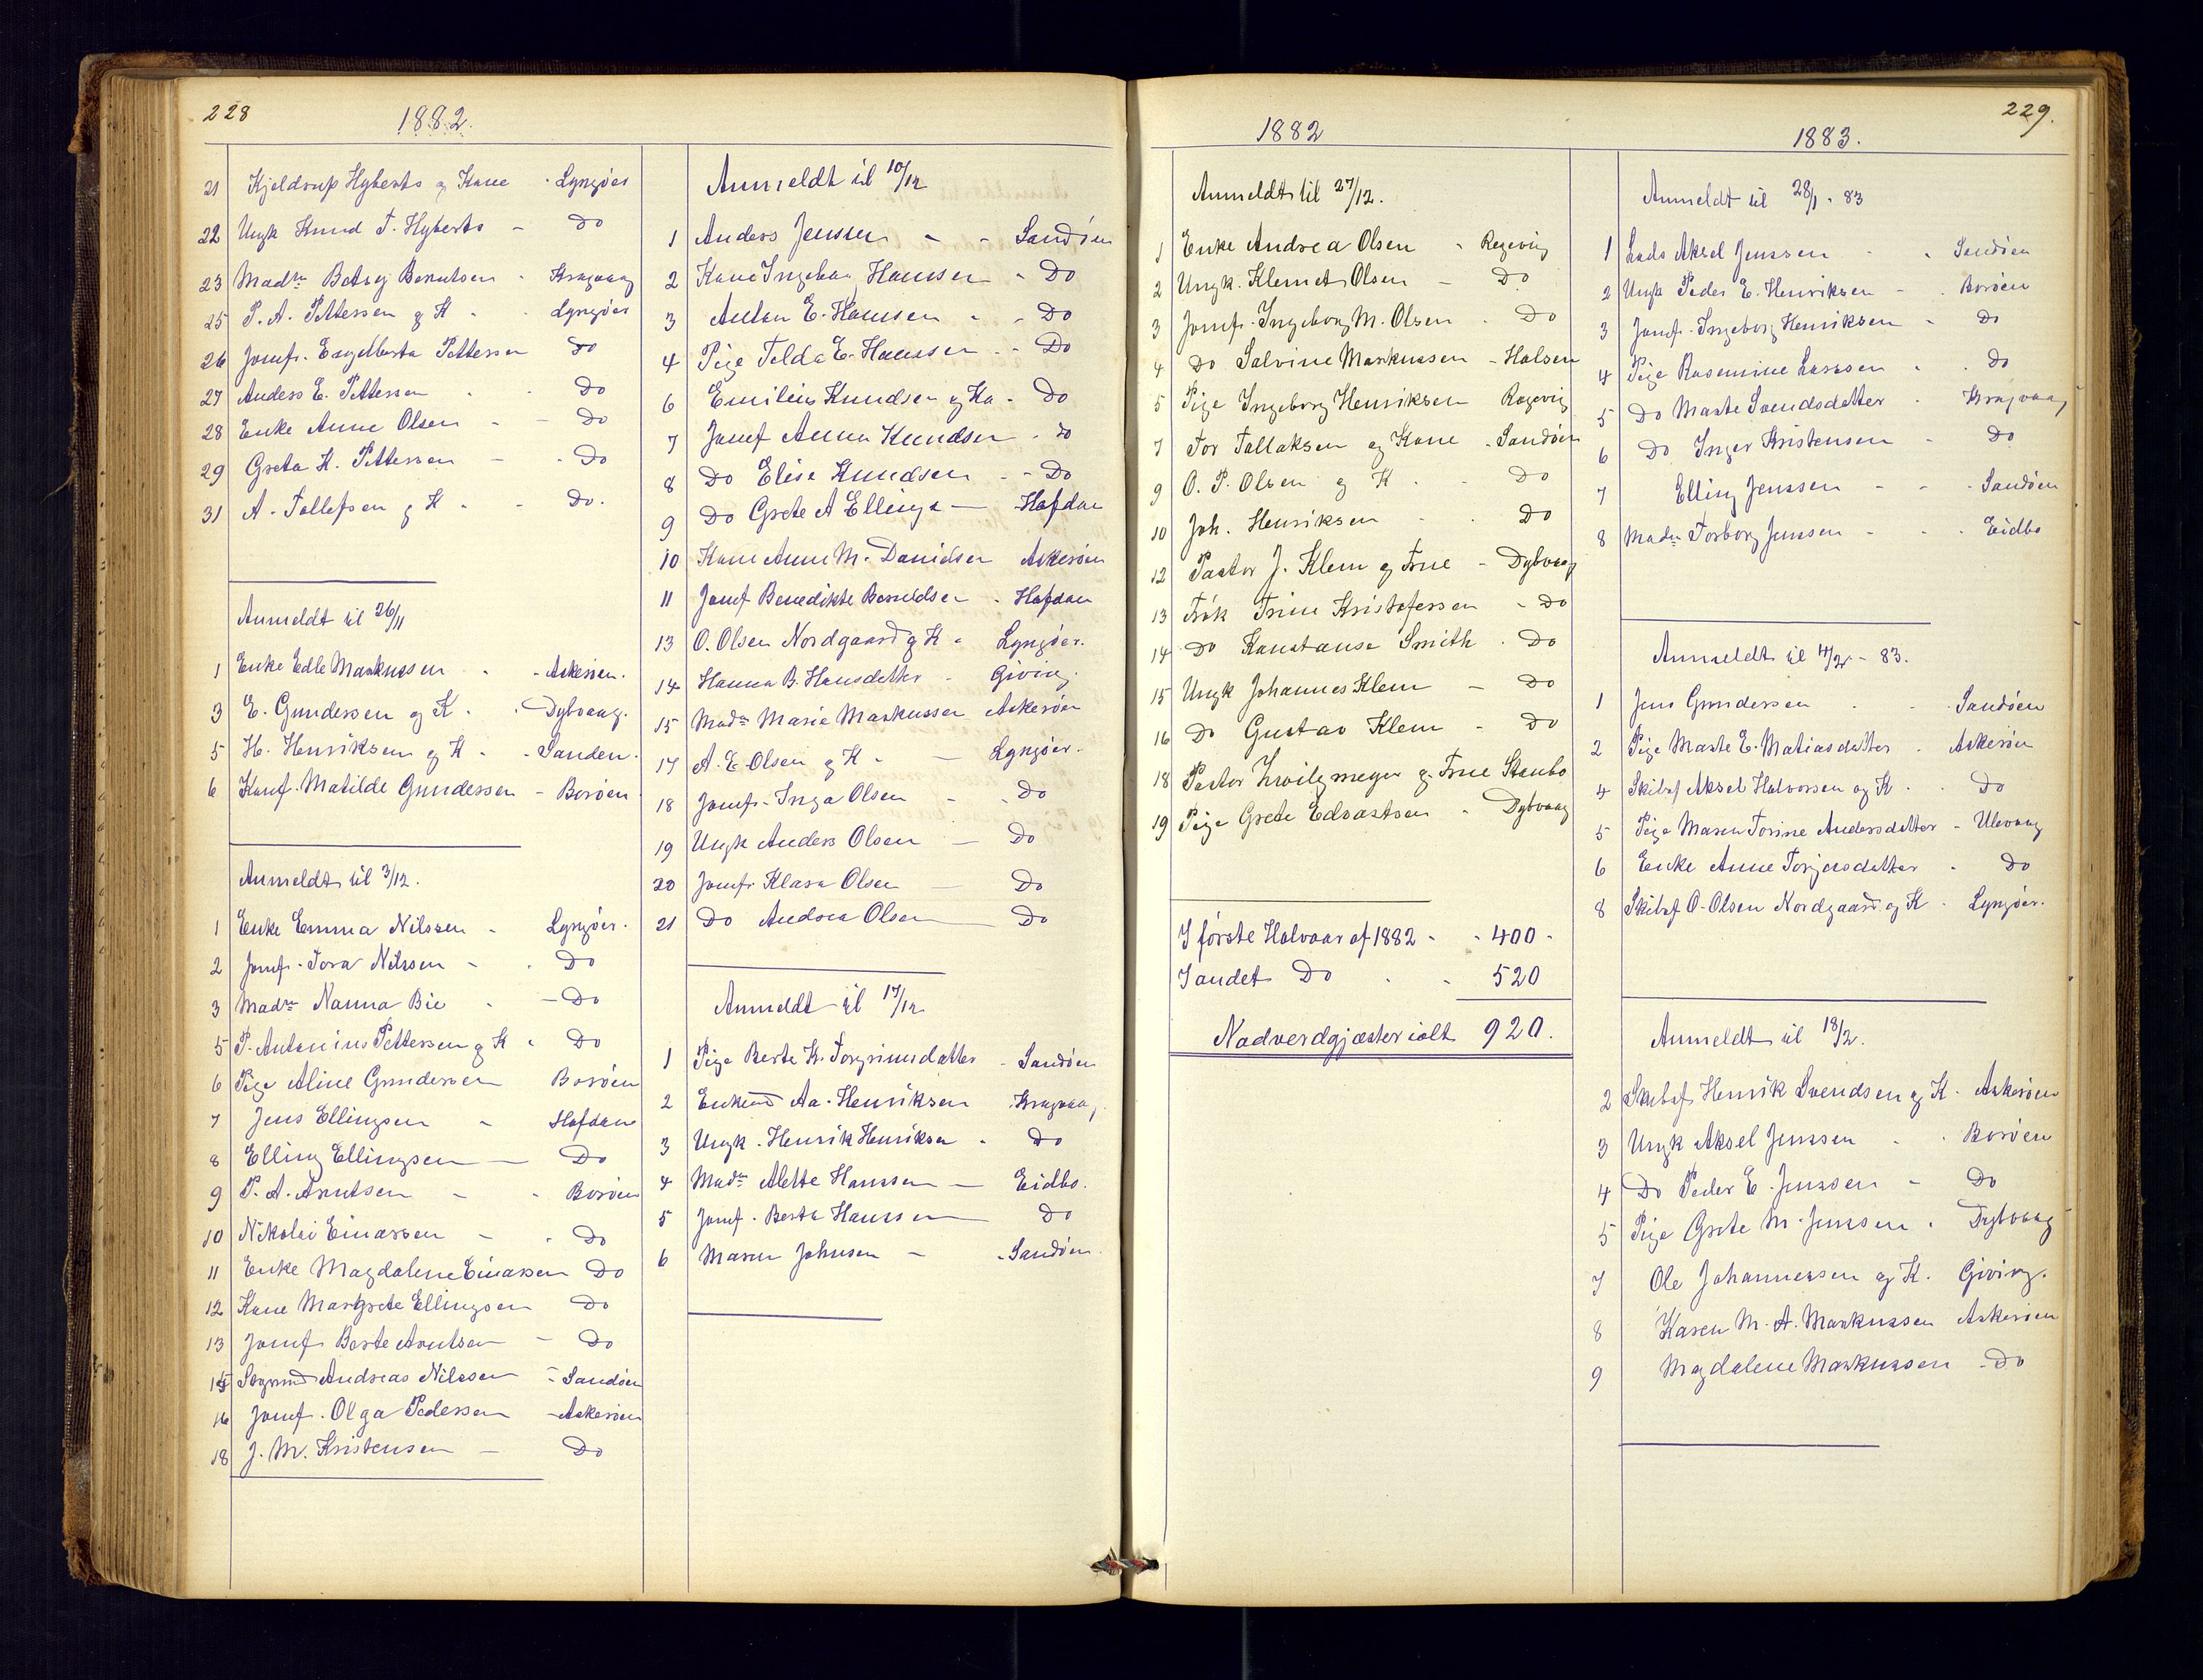 228
1882.
21 Kjeldrup Hyberts og Kone - Lyngöer
22 Ungk Knud T. Hyberts - Do
23 Madm Betsy Berntsen - Kragvaag
25 P. A. Pettersen og K - - Lyngöer
26 Jomf. Engelberta Pettersen Do
27 Anders E. Pettersen - - Do
28 Enke Anne Olsen - - Do
29 Greta K. Pettersen - - Do
31 A. Tallefsen og K - - Do.
Anmeldt til 26/11
1 Enke Edle Markussen - - Askeröen.
3 E. Gundersen og K. - Dybvaag.
5 H. Henriksen og K - - Sanden.
6 Konf. Matilde Gundersen - Boröen
Anmeldt til 3/12.
1 Enke Emma Nilssen - Lyngöer.
2 Jomf. Tora Nilssen - - Do
3 Madm Nanna Bie - - Do
5 P. Antonius Pettersen og K - Do
6 Pige Aline Gundersen Boröen
7 Jens Ellingsen - Hofdan
8 Elling Ellingsen - Do
9 P. A. Arntsen - - Boröen
10 Nikolai Einarsen - - Do
11 Enke Magdalene Einarsen Do
12 Kone Margrete Ellingsen Do
13 Jomf Berte Arntsen - Do
15 Andreas Nilssen - Sandöen
16 Jomf. Olga Pedersen - Askeröen
18 J. M. Kristensen - Do
Anmeldt til 10/12
1 Anders Jenssen - - Sandöen
2 Kone Ingeborg Hanssen - Do
3 Anton E. Hanssen - - Do
4 Pige Telda E. Hanssen - - Do
6 Emilius Knudsen og Ko - Do
7 Jomf Anna Knudsen - Do
8 Do Elise Knudsen - - Do
9 Do Grete A Ellings - Hofdan
10 Kone Anne M. Danidsen Askeröen
11 Jomf Benedikte Bernldsen - Hofdan
13 O. Olsen Nordgaard og K - Lyngöer.
14 Hanna B. Hansdatter - Giving.
15 Madm Marie Markussen Askeröen
17 A. E. Olsen og K - - Lyngöer.
18 Jomf. Inga Olsen - - Do
19 Ungk Anders Olsen - Do
20 Jomfr Klara Olsen - Do
21 Do Andrea Olsen - Do
Anmeldt til 17/12
1 Pige Berte K. Torgrimsdatter - Sandöen
2 Enkemd Aa. Henriksen Kragvaag.
3 Ungk. Henrik Henriksen - Do
4 Madm Alette Hanssen - Eidbo.
5 Jomf. Berta Hanssen - Do
6 Maren Johnsen - - Sandöen.
1882
Anmeldt til 27/12.
1 Enke Andrea Olsen - Regevig
2 Ungk. Klemet Olsen - Do
3 Jomf. Ingeborg M. Olsen - Do
4 Do Salvine Markussen - Holsen
5 Pige Ingeborg Henriksen Regevig
7 Tor Tallaksen og Kone - Sandöen
9 O. P. Olsen og K - - Do
10 Joh. Henriksen - - Do
12 Pastor J. Klem og Frue - Dybvaag
13 Frök Trine Kristofersen - Do
14 Do Konstanse Smith - Do
15 Ungk Johannes Klem - Do
16 Do Gustav Klem - Do
18 Pastor Zwilgmeyer og Frue Stanbo
19 Pige Grete Edvartsen - Dybvaag
I förste Halvaar af 1882 - - 400 -
I andet Do - - 520
Nadverdgjæster ialt 920.
229.
1883.
Anmeldt til 28/1 - 83
1 Lods Aksel Jenssen - - Sandöen
2 Ungk Peder E. Henriksen - - Boröen
3 Jomf. Ingeborg Henriksen - Do
4 Pige Rasmine Larssen - - Do
5 Do Marte Svendsdatter - Kragvaag
6 Do Inger Kristensen - Do
7 Elling Jenssen - - - Sandöen
8 Madm Torborg Jenssen - - - Eidbo
Anmeldt til 4/2 - 83.
1 Jens Gundersen - - Sandöen
2 Pige Marte E. Matiasdatter - Askeröen
4 Skibsf Aksel Halvorsen og K - - Do
5 Pige Maren Torine Andersdatter - Ulevaag
6 Enke Anne Torjersdatter - Do
8 Skibsf O. Olsen Nordgaard og K - Lyngöer.
Anmeldt til 18/2.
2 Skibsf Henrik Svendsen og K - Askeröen
3 Ungk Aksel Jenssen - - Boröen
4 Do Peder E. Jenssen - Do
5 Pige Grete M. Jenssen - Dybvaag
7 Ole Johannessen og K. Giving.
8 Karen M. A. Markussen Askeröen
9 Magdalene Markussen - Do